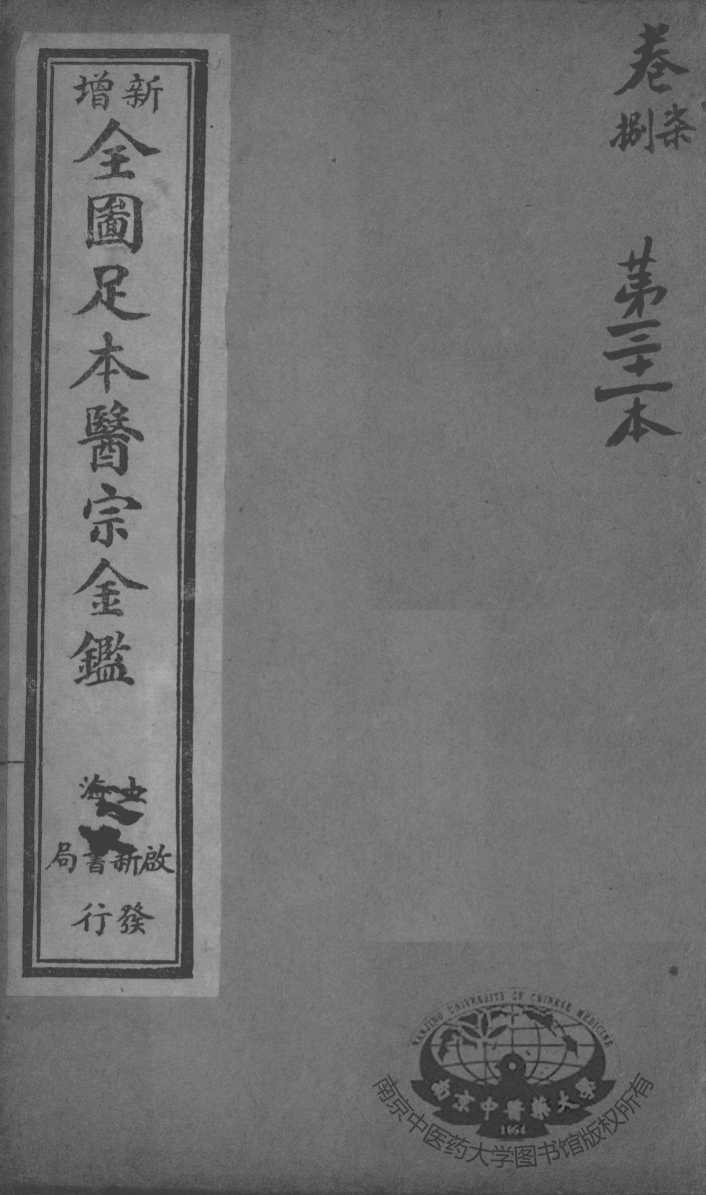 卷
柒捌
第三十一本
新增
全圖足本醫宗金鑑
上海
啟新書局
發行
NANJING UNIVERSITY OF CHINESE MEDICINE
南京中醫藥大學
1954
南京中医药大学图书馆版权所有